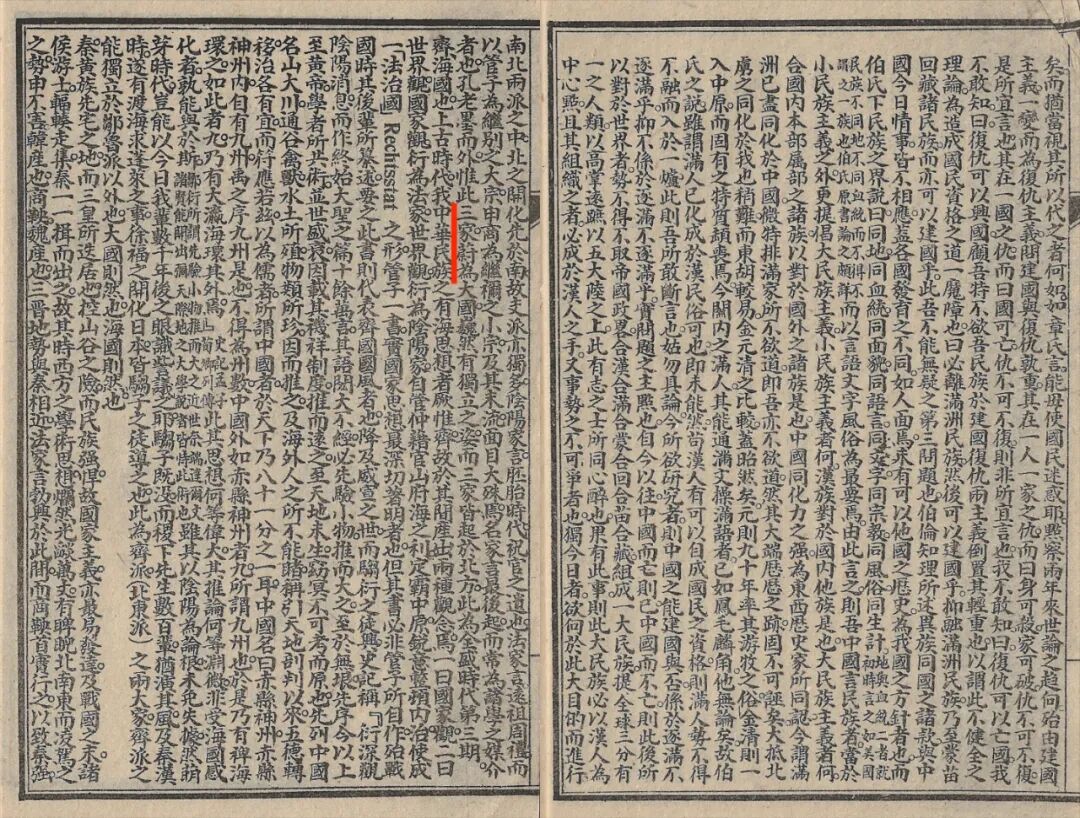 矣而猶當視其所以代之者何如如章氏言能毋使國民迷惑耶默察兩年來世論之趨向殆由建國
主義一變而為復仇主義問建國與復仇孰重其在一人一家之仇而曰身可殺家可破仇不可不復
是所宜言也其在一國之仇而曰國可亡仇不可不復則非所宜言也我不敢知曰復仇可以亡國我
不敢知曰復仇可以興國顧吾特不欲吾民族於建國復仇兩主義倒置其輕重也以謂此不健全之
理論為造成國民資格之道一魔障也曰必離滿洲民族然後可以建國乎抑融滿洲民族乃至蒙苗
回藏諸民族而亦可以建國乎此吾不能無疑之第三問題也伯倫知理所述異族同國之諸款與中
國今日情事皆不相應蓋各國發音之不同如人面焉未有可以他國之歷史為我國之方針者也而
伯氏下民族之界說曰同地同血統同面貌同語言同文字同宗教同風俗同生計地與血統二者就初時言之如美國
民族不同地不同血統而不得不謂之一族也伯氏原書論之頗詳而以言語文字風俗為最要焉由此言之則吾中國言民族者當於
小民族主義之外更提倡大民族主義小民族主義者何漢族對於國內他族是也大民族主義者何
合國內本部屬部之諸族以對於國外之諸族是也中國同化力之強為東西歷史家所同認今謂滿
洲已盡同化於中國微特排滿家所不欲道即吾亦不欲道然其大端歷歷之跡固不可誣矣大抵北
虜之同化於我也稍難而東胡較易金元清之比較蓋昭然矣元則九十年率其游牧之俗金清則一
入中原而固有之特質頹喪焉今關內之滿人其能通滿文操滿語者已如鳳毛麟角他無論矣故伯
氏之說雖謂滿人已化成於漢民俗可也即未能然苟漢人有可以自成國民之資格則滿人勢不得
不融而入於一爐此則吾所敢斷言也姑勿具論今所欲研究者則中國之能建國與否係於逐滿不
逐滿乎抑不係於逐滿不逐滿乎實問題之主點也自今以往中國而亡則已中國而不亡則此後所
以對於世界者勢不得不取帝國政略合漢合滿合蒙合回合苗合藏組成一大民族提全球三分有
一之人類以高掌遠蹠於五大陸之上此有志之士所同心醉也果有此事則此大民族必以漢人為
中心點且其組織之者必成於漢人之手又事勢之不可爭者也獨今日者欲向於此大目的而進行
南北兩派之中北之開化先於南故支派亦獨多陰陽家言胚胎時代祝官之遺也法家言遠祖周禮而
以管子為繼別之大宗申商為繼禰之小宗及其末流面目大殊焉名家言最後起而常為諸學之媒介
者也孔老墨而外惟此三家蔚為大國巍然有獨立之姿而三家皆起於北方此為全盛時代第三期
齊海國也上古時代我中華民族之有海思想者厥惟齊故於其間產出兩種觀念焉一曰國家觀二曰
世界觀國家觀衍為法家世界觀衍為陰陽家自管仲藉官山府海之利定霸中原銳意整頓內治使成
一「法治國」Rechtsstat之形管子一書實國家思想最深切著明者也但其書必非管子所自作殆戰
國時其後輩所纂述要之此書則代表齊國國風者也降及威宣之世而騶衍之徒興史記稱「衍深觀
陰陽消息而作終始大聖之篇十餘萬言其語閎大不經必先驗小物推而大之至於無垠先序今以上
至黃帝學者所共術並世盛衰因載其禨祥制度推而遠之至天地未生窈冥不可考而原也先列中國
名山大川通谷禽獸水土所殖物類所珍因而推之及海外人之所不能睹稱引天地剖判以來五德轉
移治各有宜而符應若茲以為儒者所謂中國者於天下乃八十一分之一耳中國名曰赤縣神州赤縣
神州內自有九州禹之序九州是也不得為州數中國外如赤縣神州者九所謂九州也於是乃有裨海
環之如此者九乃有大瀛海環其外焉」此其思想何等偉大其推論何等淵微非受海國感
化者孰能與於斯雖其以陰陽為論根未免失據然萌
芽時代豈能以今日我輩數千年後之眼識訾議之耶騶子既沒而稷下先生數百輩猶演其風及秦漢
時遂有渡海求蓬萊之事徐福之開化日本皆騶子之徒導之也此為齊派（北東派）之兩大家派之
能獨立於鄒魯派以外也大國則然也海國則然也
秦黃族先宅之地而三皇所迭居也控山谷之險而民族強悍故國家主義亦最易發達及戰國之末諸
侯游士輻輳走集秦一一揖而出之故其時西方之學術思想爛然光燄萬丈有睥睨北南東而凌駕之
之勢申不害韓產也商鞅魏產也三晉地勢與秦相近法家言勃興於此間而商鞅首實行之以致秦強